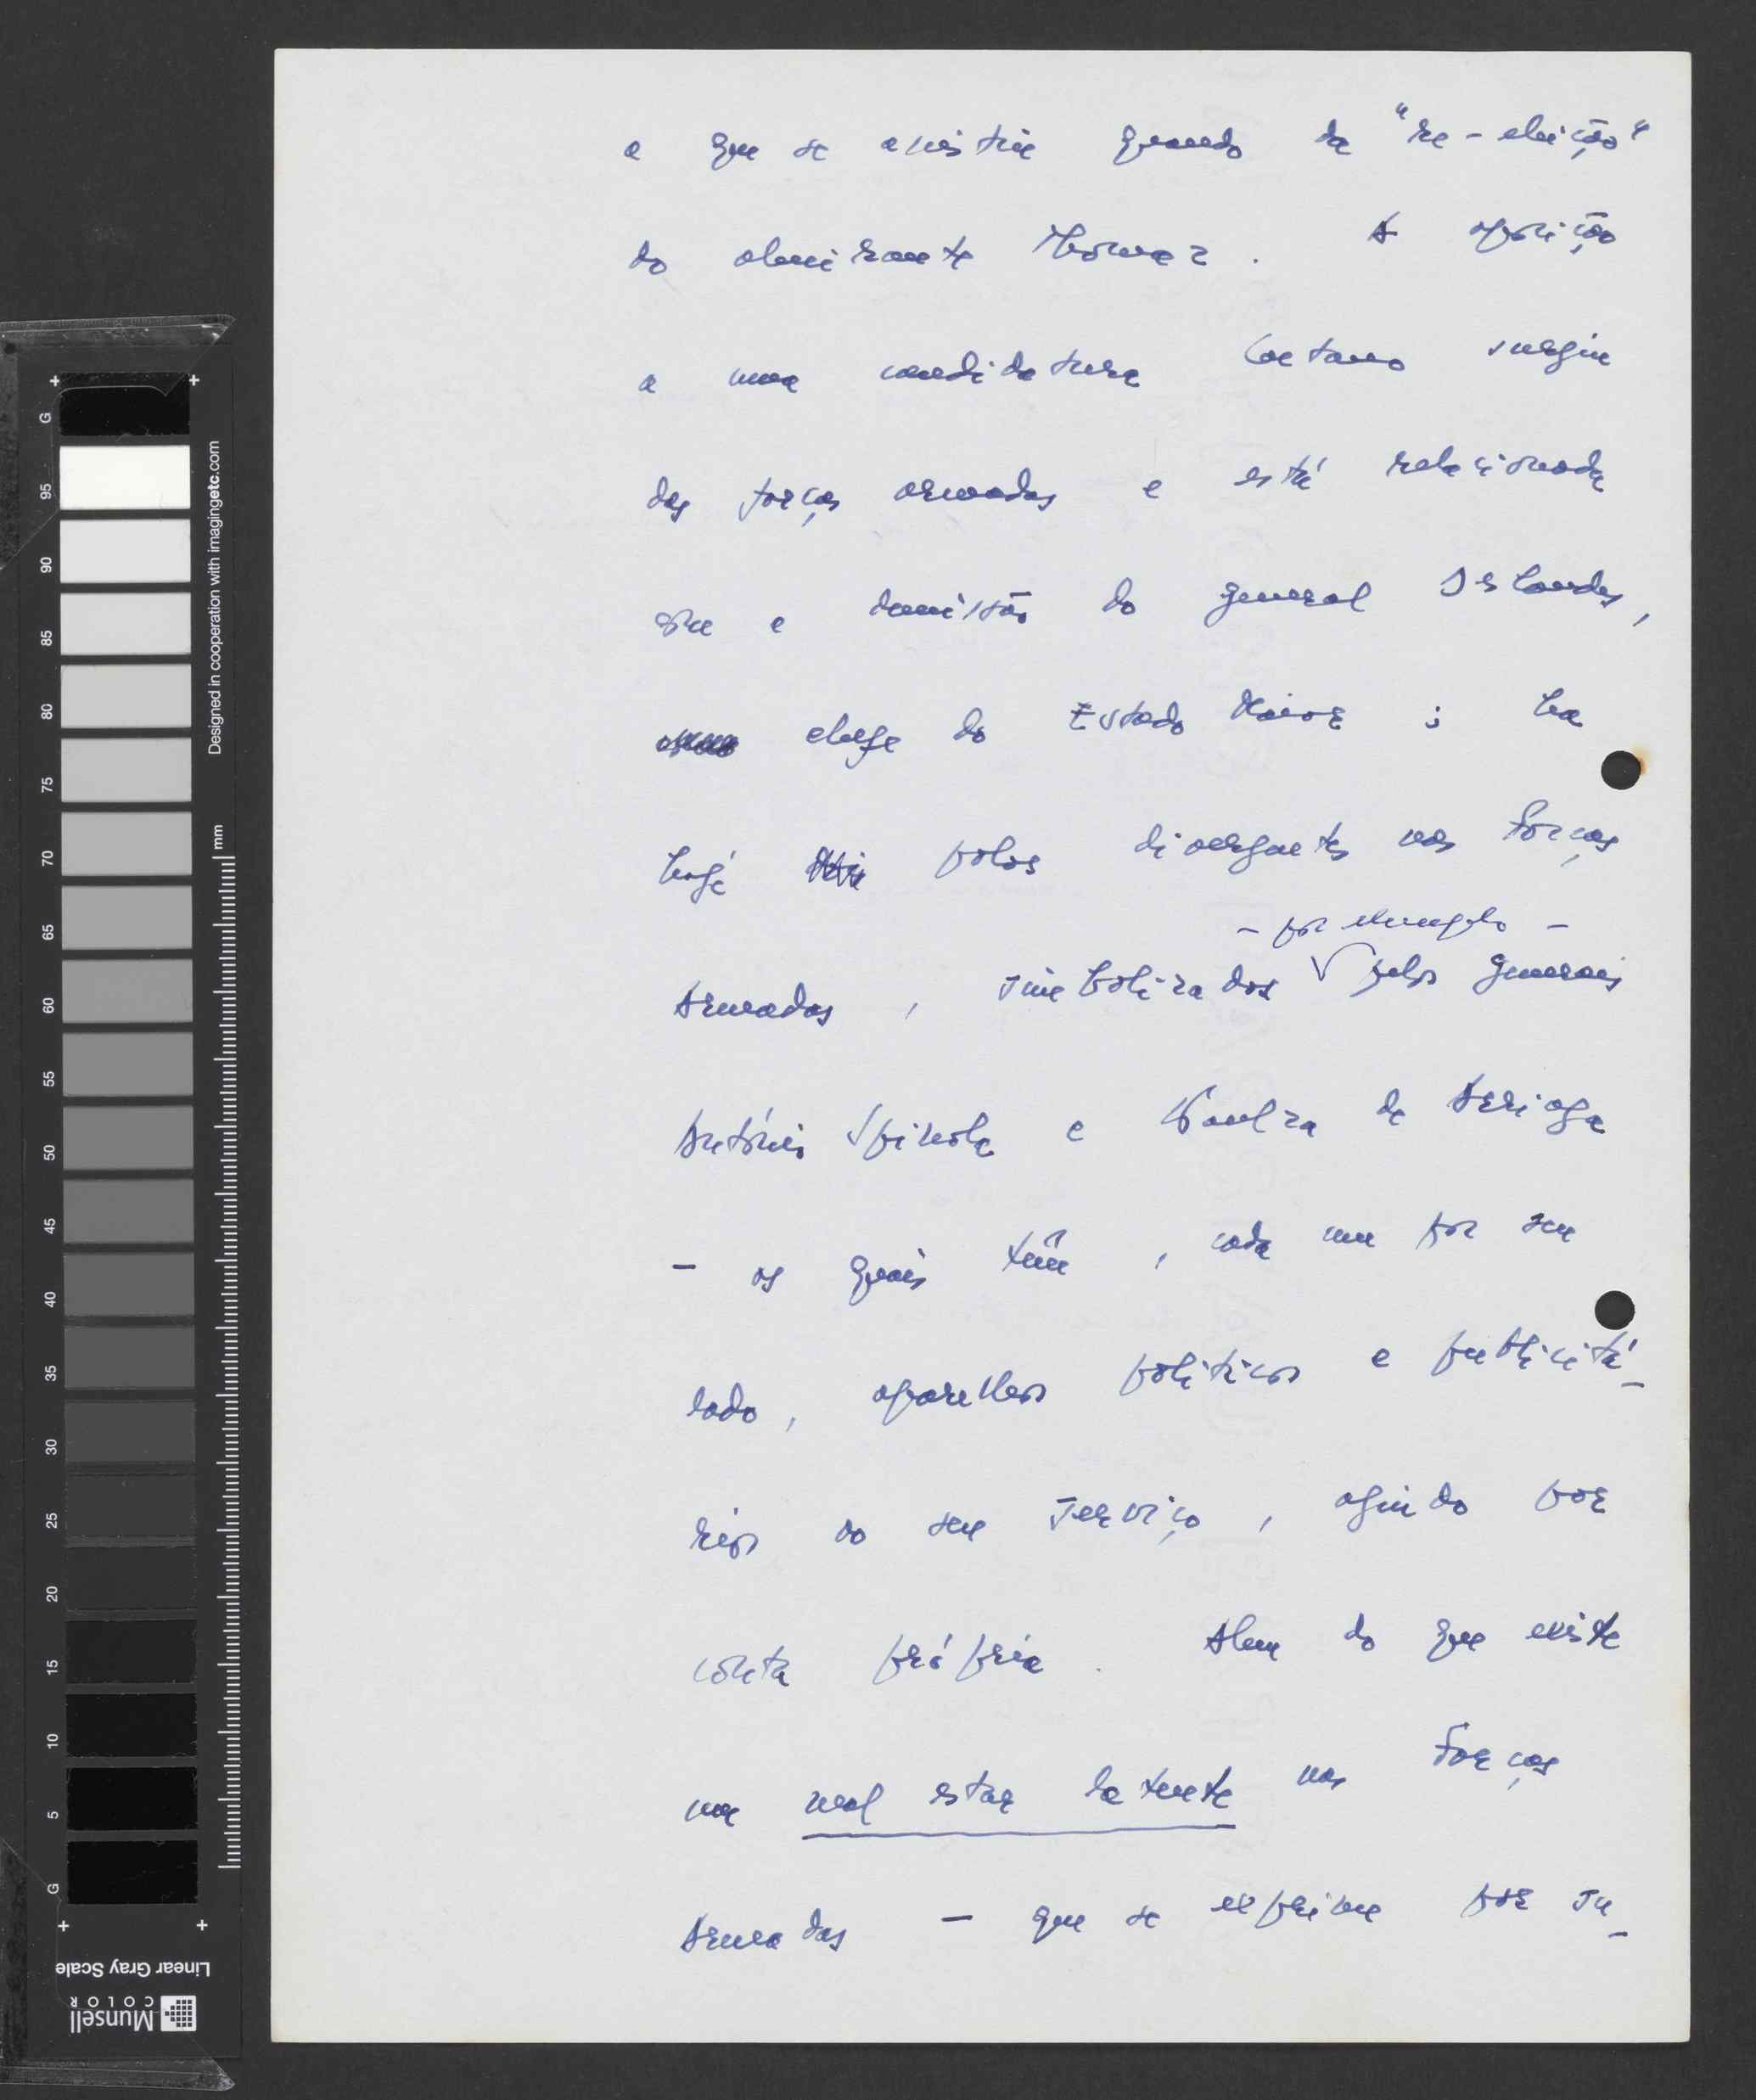 a que se assistiu quando da "re-eleição"
do almirante Thomaz. A oposição
a uma candidatura Caetano surgiu
das forças armadas e está relacionada
com a demissão do general Deslandes,
chefe do Estado Maior; ha
hoje polos divergentes nas Forças
- por exemplo -
Armadas, simbolizados pelos generais
António Spinola e Kaulza de Arriaga
- os quais têm, cada um por seu
lado, aparelhos politicos e publicitá-
rios ao seu serviço, agindo por
conta própria. Alem do que existe
um mal estar latente nas Forças
Armadas - que se exprime por in-
G 95 90 85 80 75 70 65 60 55 50 45 40 35 30 25 20 15 10 5 G
mm
Designed in cooperation with imagingetc.com
Linear Gray Scale
Munsell
COLOR